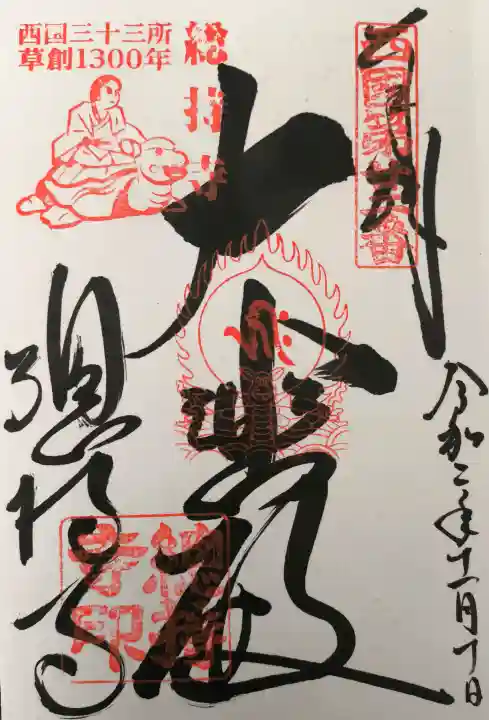 西國第廿二番
奉拝
令和二年十一月十日
大悲殿
西国三十三所
草創1300年
総持寺
総持寺
総持寺印